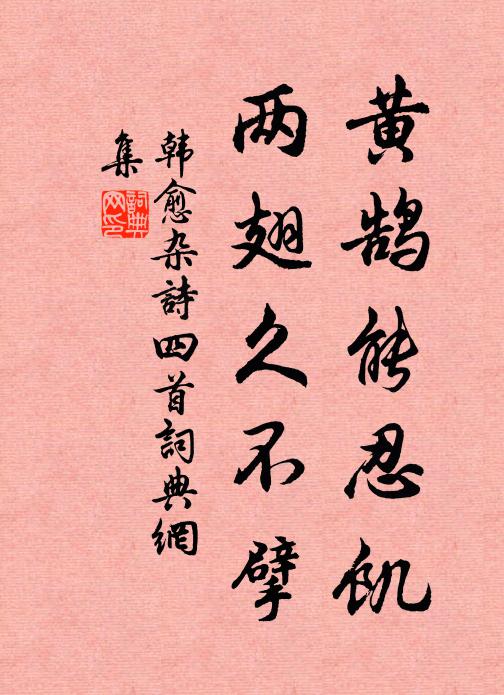 黄鹄能忍饥
两翅久不擘
韩愈杂詩四首詞典網
集
詞典网印